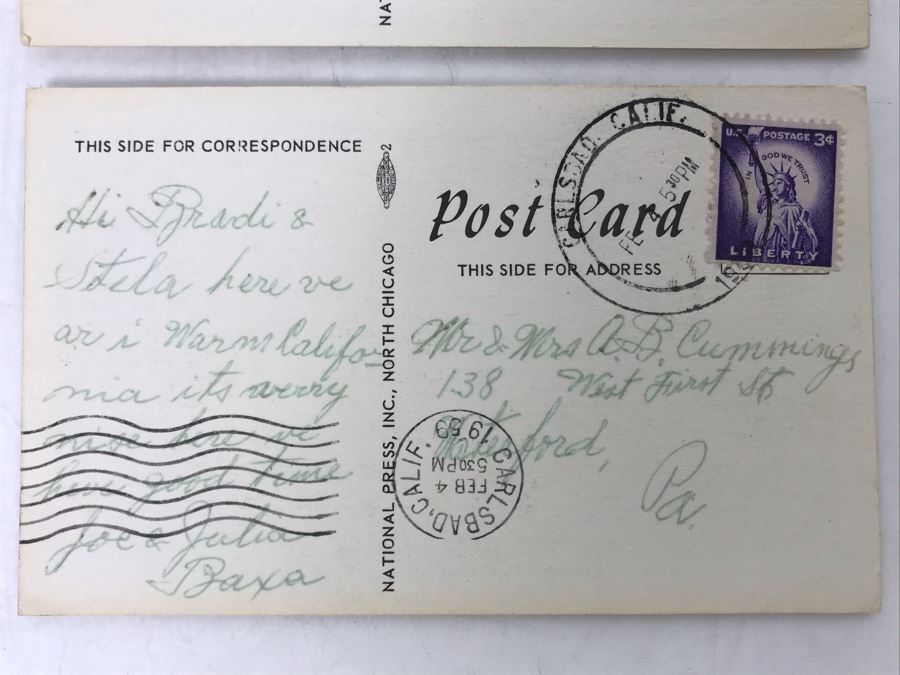 NA
THIS SIDE FOR CORRESPONDENCE
2
Hi Bradi &
Stela here ve
ar i Warm Califor
nia its werry
nise here vi
have good time
Joe & Julia
Baxa
NATIONAL PRESS, INC., NORTH CHICAGO
Post Card
THIS SIDE FOR ADDRESS
CARLSBAD, CALIF.
FEB 4 530 PM
U.S. POSTAGE 3¢
IN GOD WE TRUST
LIBERTY
Mr & Mrs A.B. Cummings
138 West First St
Waterford,
Pa.
CARLSBAD, CALIF.
FEB 4
530 PM
1959